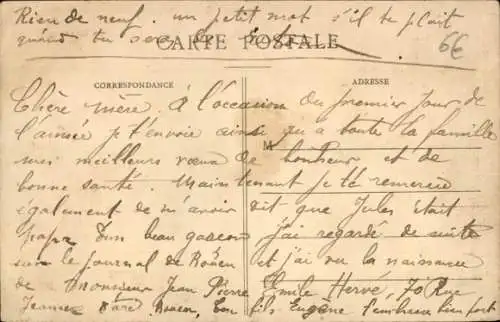 Rien de neuf. un petit mot s'il te plait
quand tu
CARTE POSTALE
6€
CORRESPONDANCE
ADRESSE
Chère mère. A l'occasion du premier jour de
l'année je t'envoie ainsi qu a toute la famille
M
mes meilleurs vœux de bonheur et de
bonne santé. Maintenant je te remercie
également de m'avoir dit que Jules était
papa d'un beau garçon j'ai regardé de suite
sur le journal de Rouen et j'ai vu la naissance
de Monsieur Jean Pierre Emile Hervé, 70 Rue
Jeanne Darc Rouen, Ton fils Eugène t'embrasse bien fort